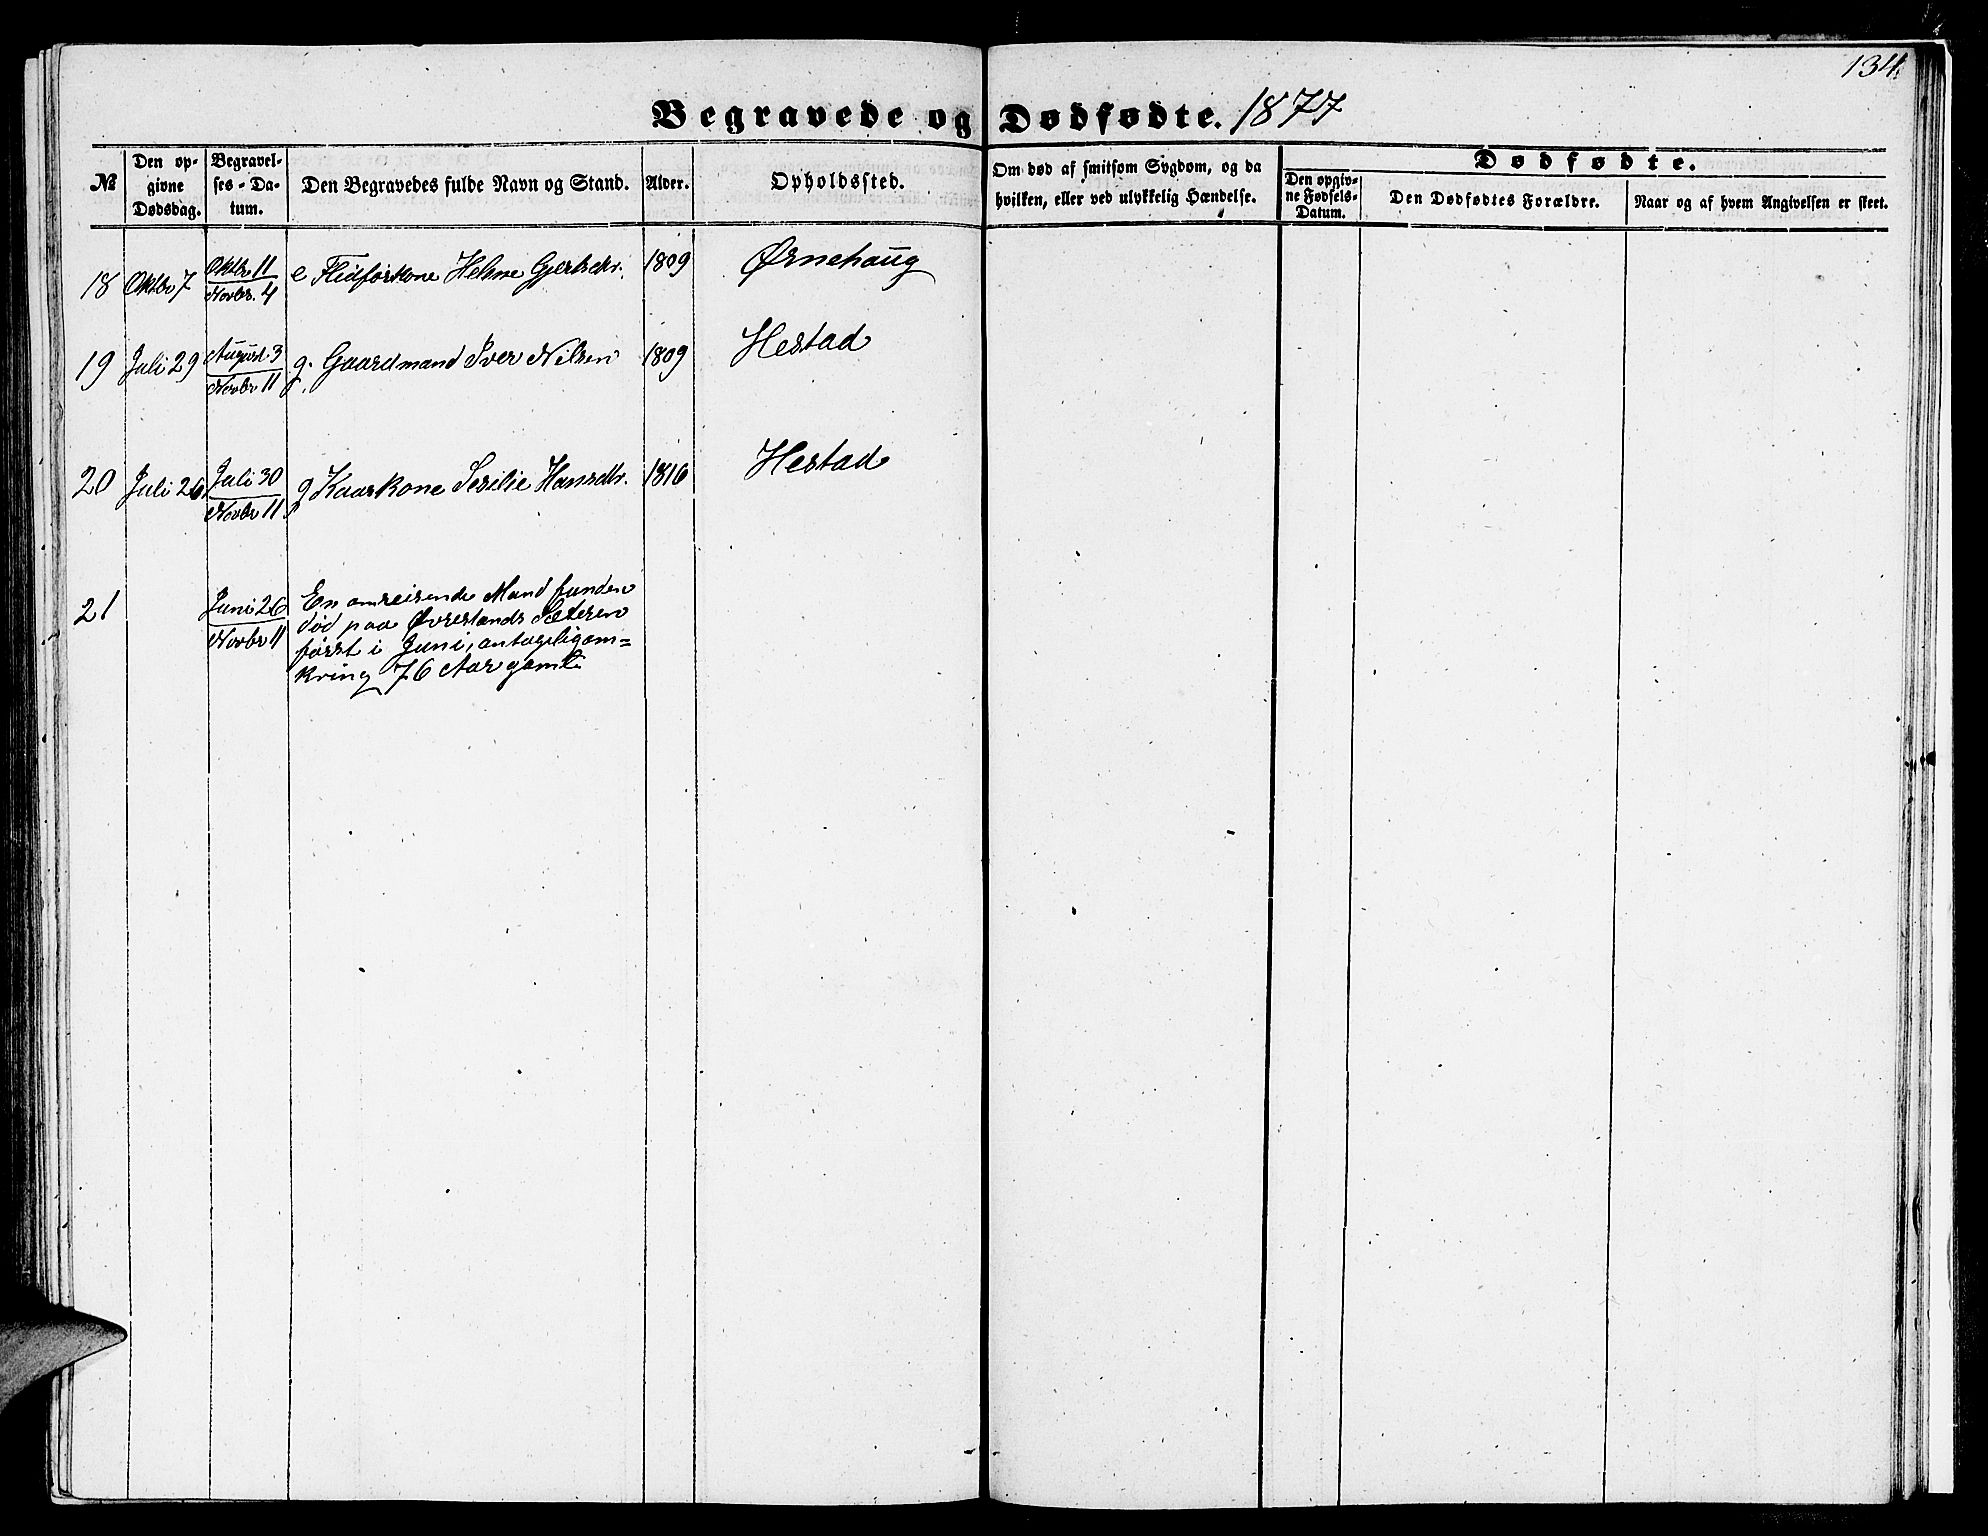 134.
Begravede og Dødfødte. 1877
№
Den op-
givne
Dødsdag.
Begravel-
ses-Da-
tum.
Den Begravedes fulde Navn og Stand.
Alder.
Opholdssted.
Om død af smitsom Sygdom, og da
hvilken, eller ved ulykkelig Hændelse.
Dødfødte.
Den opgiv-
ne Fødsels-
Datum.
Den Dødfødtes Forældre.
Naar og af hvem Angivelsen er skeet.
18 Oktbr 7 Oktbr 11 / Novbr. 4 e Helene Gjertsdtr. 1809 Ørnehaug
19 Juli 29 August 3 / Novbr 11 g. Gaardmand Iver Nilsen 1809 Hestad
20 Juli 26 Juli 30 / Novbr 11 g Kaarkone Sesilie Hansdtr. 1816 Hestad
21 Juni 26 / Novbr 11 En omreisende Mand funden
død paa Øvrestands Sæteren
først i Juni, antageligom=
kring 76 Aar gaml.